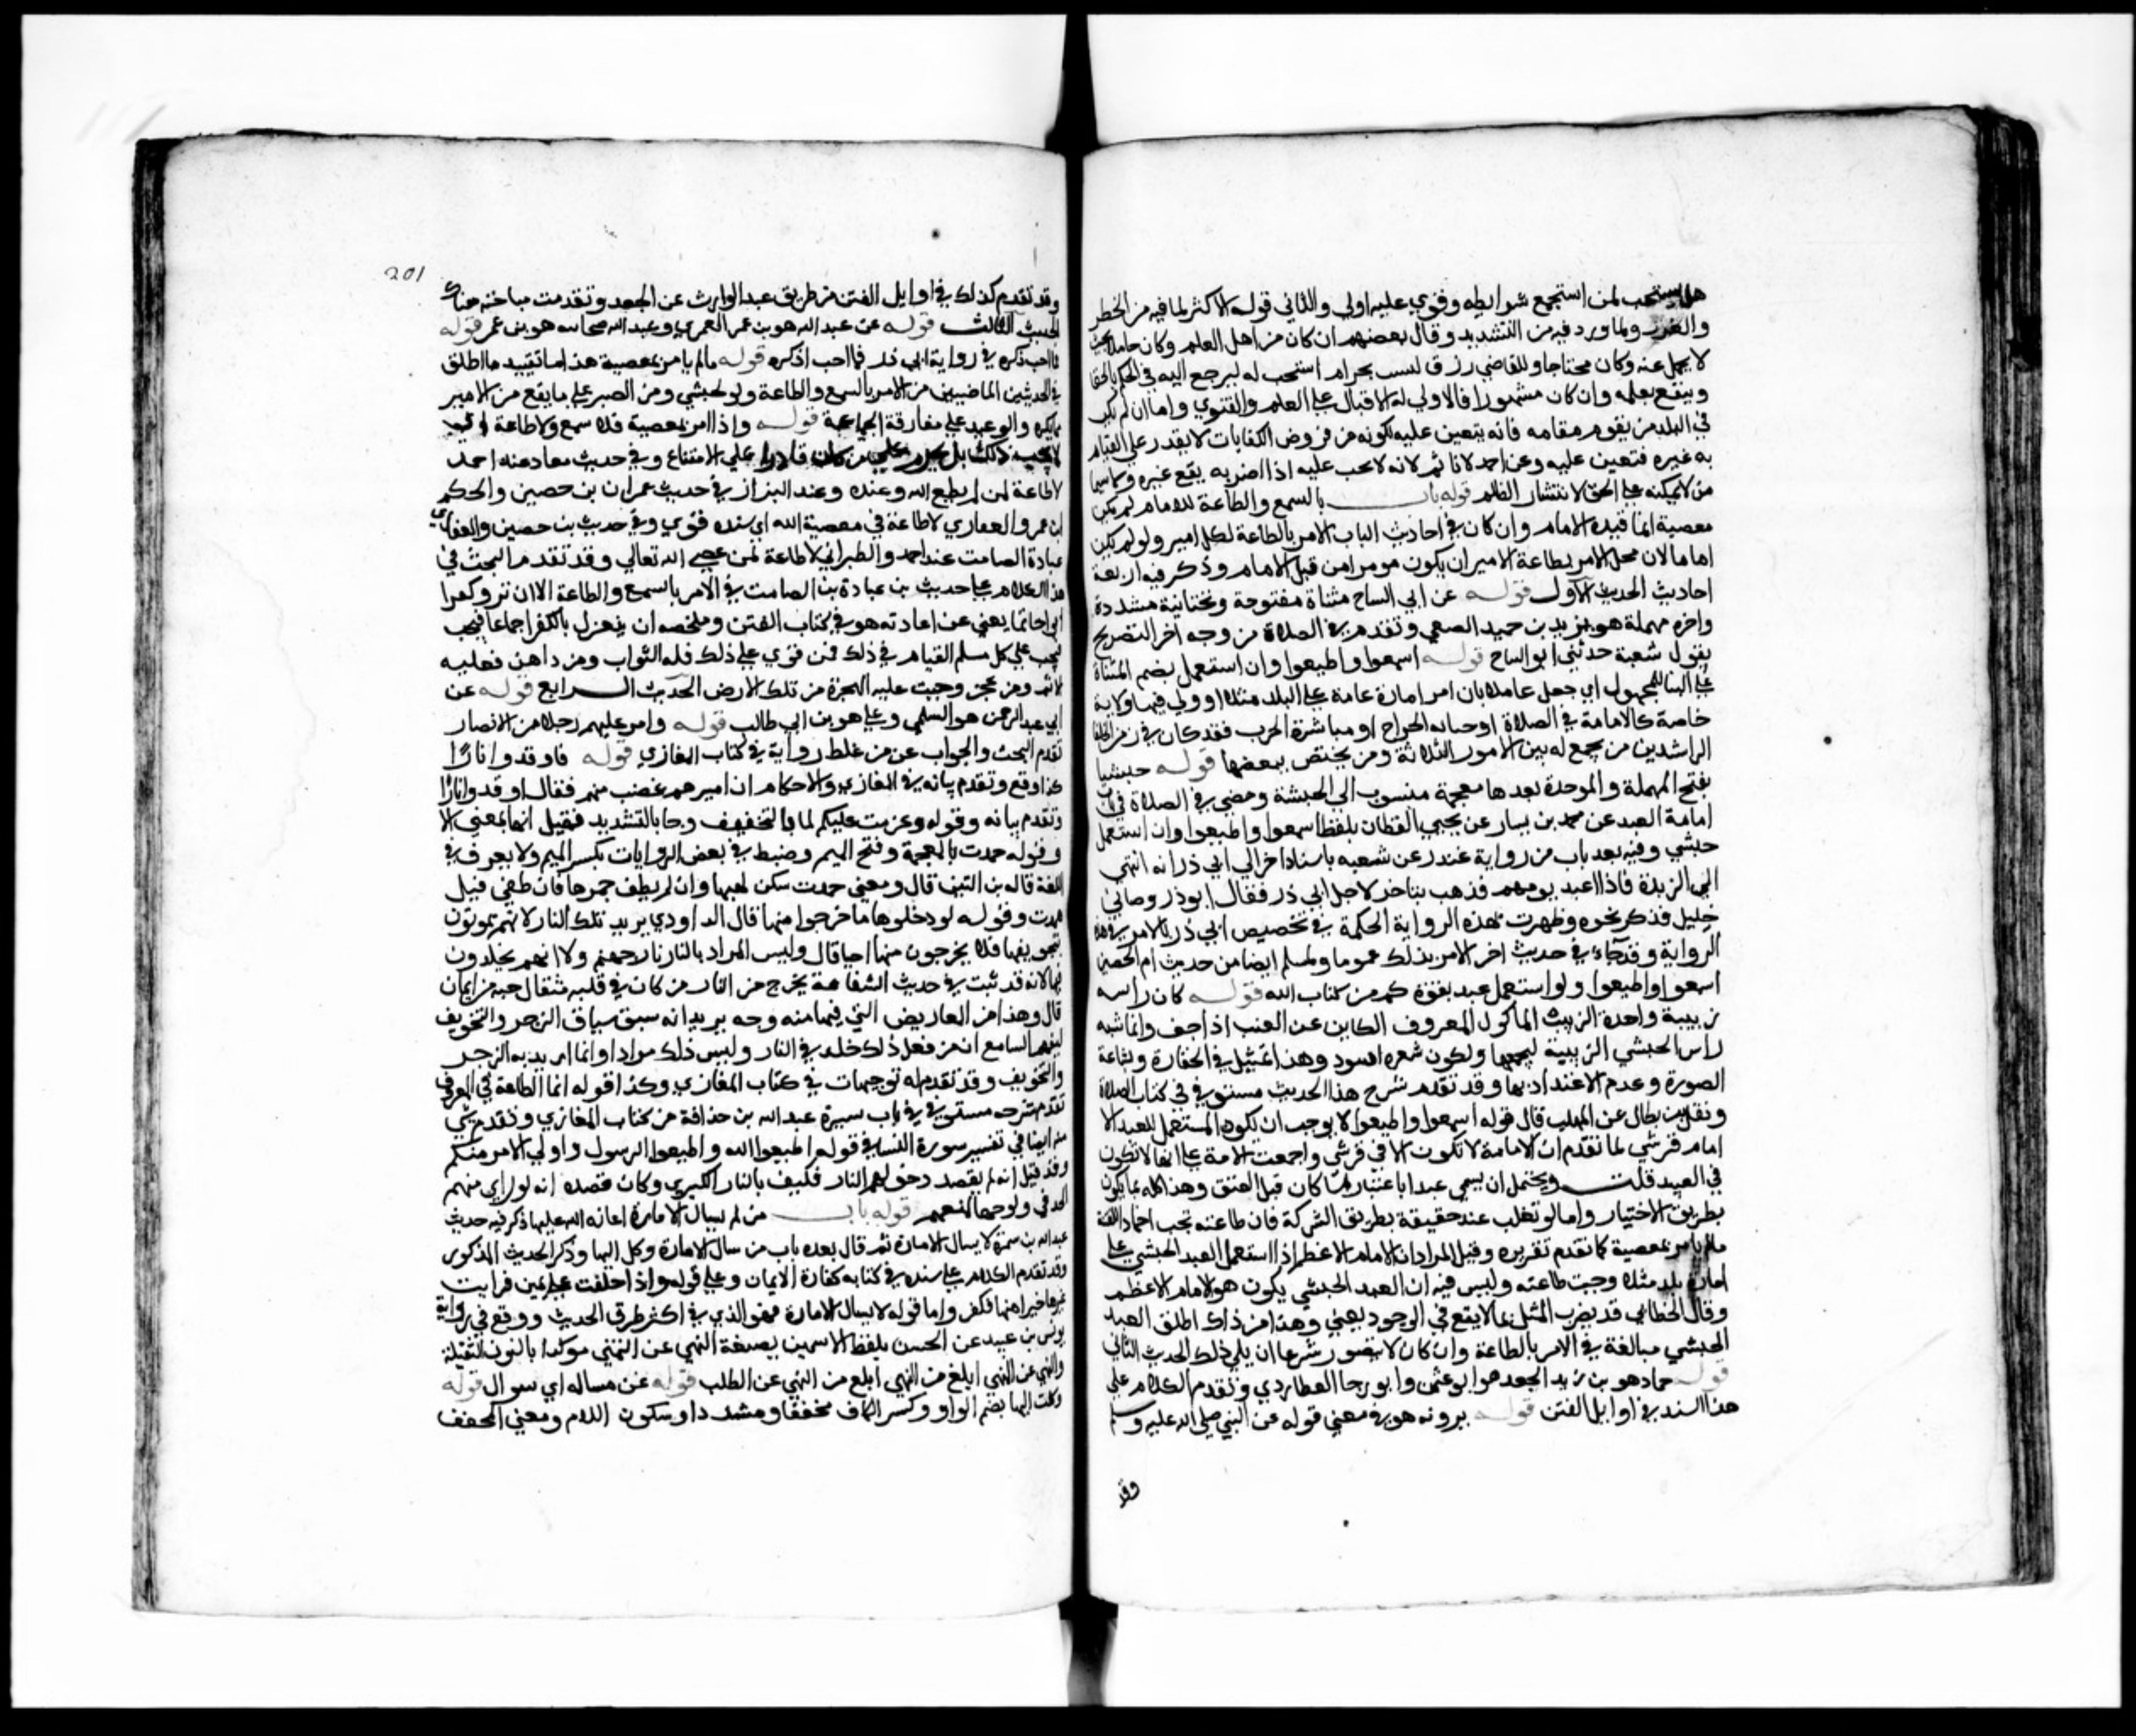 هل يستحب لمن استجمع شرايطه وقوي عليه اولي والثاني قول الاكثر لما فيه من الخطر
والغرر ولما ورد فيه من التشديد وقال بعضهم ان كان من اهل العلم وكان خاملا بحيث
لا يحمل عنه وكان محتاجا وللقاضي رزق ليس بحرام استحب له ليرجع اليه في الحكم بالحق
وينتفع بعلمه وان كان مشهورا فالاولي له الاقبال علي العلم والفتوي واما ان لم يكن
في البلد من يقوم مقامه فانه يتعين عليه لكونه من فروض الكفايات لا يقدر علي القيام
به غيره فتعين عليه وعن احمد لا ياثم لانه لا يجب عليه اذا اضر به نفع غيره ولا سيما
من لا يمكنه عمل الحق لانتشار الظلم قوله باب السمع والطاعة للامام لم تكن
معصية انما قيده بالامام وان كان في احاديث الباب الامر بالطاعة لكل امير ولو لم يكن
اماما لان محل الامر بطاعة الامير ان يكون مومرا من قبل الامام وذكر فيه اربعة
احاديث الحديث الاول قوله عن ابي التياح مثناة مفتوحة وتحتانية مشددة
واخره مهملة هو يزيد بن حميد الضبعي وتقدم في الصلاة من وجه اخر التصريح
بقول شعبة حدثني ابو التياح قوله اسمعوا واطيعوا وان استعمل بضم المثناة
علي البنا للمجهول اي جعل عاملا بان امر امارة عامة علي البلد مثلا او ولي فيها ولاية
خاصة كالامامة في الصلاة او جباية الخراج او مباشرة الحرب فقد كان في زمن الخلفا
الراشدين من يجمع له بين الامور الثلاثة ومن يختص ببعضها قوله حبشيا
بفتح المهملة والموحدة بعدها معجمة منسوب الي الحبشة ومضي في الصلاة في باب
امامة العبد عن محمد بن بسار عن يحيي القطان بلفظ اسمعوا واطيعوا وان استعمل
حبشي وفيه بعد باب من رواية غندر عن شعبه باسناد اخر الي ابي ذر انه انتهي
الي الربذة فاذا عبد يومهم فذهب يتاخر لاجل ابي ذر فقال ابو ذر وصاني
خليل فذكر نحوه وظهرت بهذه الرواية الحكمة في تخصيص ابي ذر بالامر في هذه
الرواية وقد جاء في حديث اخر الامر بذلك عموما ولمسلم ايضا من حديث ام الحصين
اسمعوا واطيعوا ولو استعمل عبد يقودكم من كتاب الله قوله كان راسه
زبيبة واحدة الزبيب الماكول المعروف الكاين عن العنب اذا جف وانما شبه
راس الحبشي الزبيبة لتجمعها ولكون شعره اسود وهذا تمثيل في الحقارة وبشاعة
الصورة وعدم الاعتداد بها وقد تقدم شرح هذا الحديث مستوفي في كتاب الصلاة
ونقل بن بطال عن المهلب قال قوله اسمعوا واطيعوا لا يوجب ان يكون المستعمل للعبد الا
امام قرشي لما تقدم ان الامامة لا تكون الا في قرشي واجمعت الامة علي انها لا تكون
في العبيد قلت ويحتمل ان يسمي عبدا باعتبار ما كان قبل العتق وهذا كله فيما يكون
بطريق الاختيار واما لو تغلب عبد حقيقة بطريق الشركة فان طاعته تجب اخمادا للفتنة
مالم يامر بمعصية كما تقدم تقريره وقيل المراد ان الامام الاعظم اذا استعمل العبد الحبشي علي
امارة بلد مثلا وجبت طاعته وليس فيه ان العبد الحبشي يكون هو الامام الاعظم
وقال الخطابي قد يضرب المثل بما لا يقع في الوجود يعني وهذا من ذاك اطلق العبد
الحبشي مبالغة في الامر بالطاعة وان كان لا يتصور شرعا ان يلي ذلك الحديث الثاني
قوله حماد هو بن زيد الجعد هو ابو عثمن وابو رجا العطاردي وتقدم الكلام علي
هذا السند في اوايل الفتن قوله يرويه هو في معني قوله عن النبي صلي الله عليه وسلم
وقد
201
وقد تقدم كذلك في اوايل الفتن من طريق عبد الوارث عن الجعد وتقدمت مباحثه هناك
الحديث الثالث قوله عن عبد الله هو بن عمر العمري وعبد الله صحابيه هو بن عمر قوله
فيما احب وكره في رواية ابي ذر فيما احب او كره قوله مالم يامر بمعصية هذا مما تقييد ما اطلق
في الحديثين الماضيين من الامر بالسمع والطاعة ولو لحبشي ومن الصبر علي ما يقع من الامير
مما يكره والوعيد علي مفارقة الجماعة قوله واذا امر بمعصية فلا سمع ولا طاعة اي
لا يجب ذلك بل يحرم علي من كان قادرا علي الامتناع وفي حديث معاذ عند احمد
لا طاعة لمن لم يطع الله وعنده وعند البزار في حديث عمران بن حصين والحكم
بن عمرو الغفاري لا طاعة في معصية الله اي سنده قوي وفي حديث بن حصين والغفاري
عبادة الصامت عند احمد والطبراني لا طاعة لمن عصي الله تعالي وقد تقدم البحث في
هذا الكلام علي حديث بن عبادة بن الصامت في الامر بالسمع والطاعة الا ان تروا كفرا
بواحا بما يغني عن اعادته هو في كتاب الفتن وملخصه ان ينعزل بالكفر اجماعا فيجب
يجب علي كل مسلم القيام في ذلك فمن قوي علي ذلك فله الثواب ومن داهن فعليه
الاثم ومن عجز وجبت عليه الهجرة من تلك الارض الحديث الرابع قوله عن
ابي عبد الرحمن هو السلمي وعلي هو بن ابي طالب قوله وامر عليهم رجلا من الانصار
تقدم البحث والجواب عن من غلط رواية في كتاب المغازي قوله فاوقدوا نارا
كذا وقع وتقدم بيانه في المغازي والاحكام ان اميرهم غضب منهم فقال اوقدوا نارا
وتقدم بيانه وقوله وعزمت عليكم لما بالتخفيف وجا بالتشديد فقيل انها بمعني الا
وقوله خمدت بالمعجمة وفتح الميم وضبط في بعض الروايات بكسر الميم ولا يعرف في
اللغة قاله بن التين قال ومعني خمدت سكن لهبها وان لم يطف جمرها فان طفي قيل
همدت وقوله لو دخلوها ما خرجوا منها قال الداودي يريد تلك النار لانهم يموتون
بتحريقها فلا يخرجون منها احيا قال وليس المراد بالنار نار جهنم ولا انهم يخلدون
فيها لانه قد ثبت في حديث الشفاعة يخرج من النار من كان في قلبه مثقال حبة من ايمان
قال وهذا من المعاريض التي فيها مندوحة يريد انه سبق سياق الزجر والتخويف
ليفهم السامع ان من فعل ذلك خلد في النار وليس ذلك مرادا وانما اريد به الزجر
والتخويف وقد تقدم له توجيهات في كتاب المغازي وكذا قوله انما الطاعة في المعروف
تقدم شرحه مستوفي في باب سيرة عبد الله بن حذافة من كتاب المغازي وتقدم شي
منه ايضا في تفسير سورة النسا في قوله اطيعوا الله واطيعوا الرسول واولي الامر منكم
وقد قيل انه لم يقصد دخولهم النار فكيف بالنار الكبري وكان قصده انه لو راي منهم
الجد في ولوجها لمنعهم قوله باب من لم يسال الامارة اعانه الله عليها ذكر فيه حديث
عبد الله بن سمرة لا يسال الامارة ثم قال بعده باب من سال الامارة وكل اليها وذكر الحديث المذكور
وقد تقدم الكلام علي سنده في كتابه كفارة الايمان وعلي قوله واذا حلفت علي يمين فرايت
غيرها خيرا منها فكفر واما قوله لا يسال الامارة فهو الذي في اكثر طرق الحديث ووقع في رواية
يونس بن عبيد عن الحسن بلفظ لا يتمنين بصيغة النهي عن التمني موكدا بالنون الثقيلة
والنهي عن التمني ابلغ من النهي ابلغ من النهي عن الطلب قوله عن مساله اي سوال قوله
وكلت اليها بضم الواو وكسر الكاف مخففا ومشددا وسكون اللام ومعني المخفف